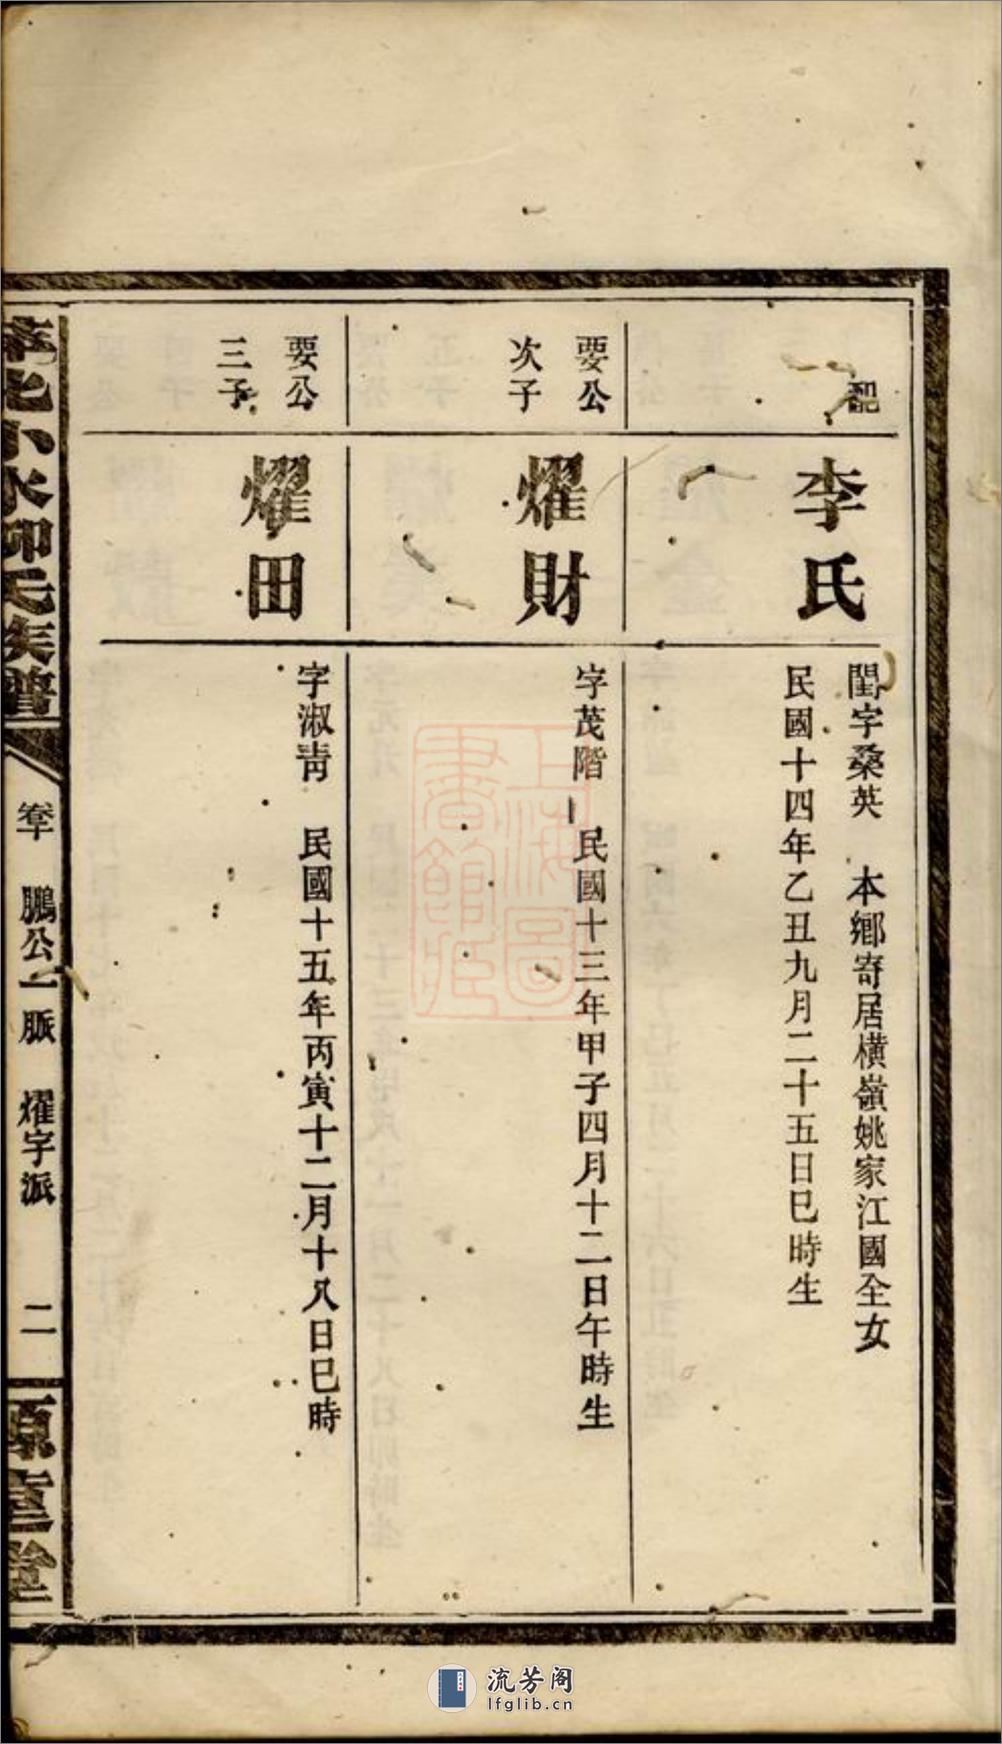 配
李氏
閨字桑英　本鄉寄居橫嶺姚家江國全女
民國十四年乙丑九月二十五日巳時生
要公
次子
燿財
字茂階　民國十三年甲子四月十二日午時生
要公
三子
燿田
字淑青　民國十五年丙寅十二月十八日巳時
小水柳氏族譜
卷十　鵬公一脈　燿字派　二
上海圖書館藏
流芳阁
lfglib.cn